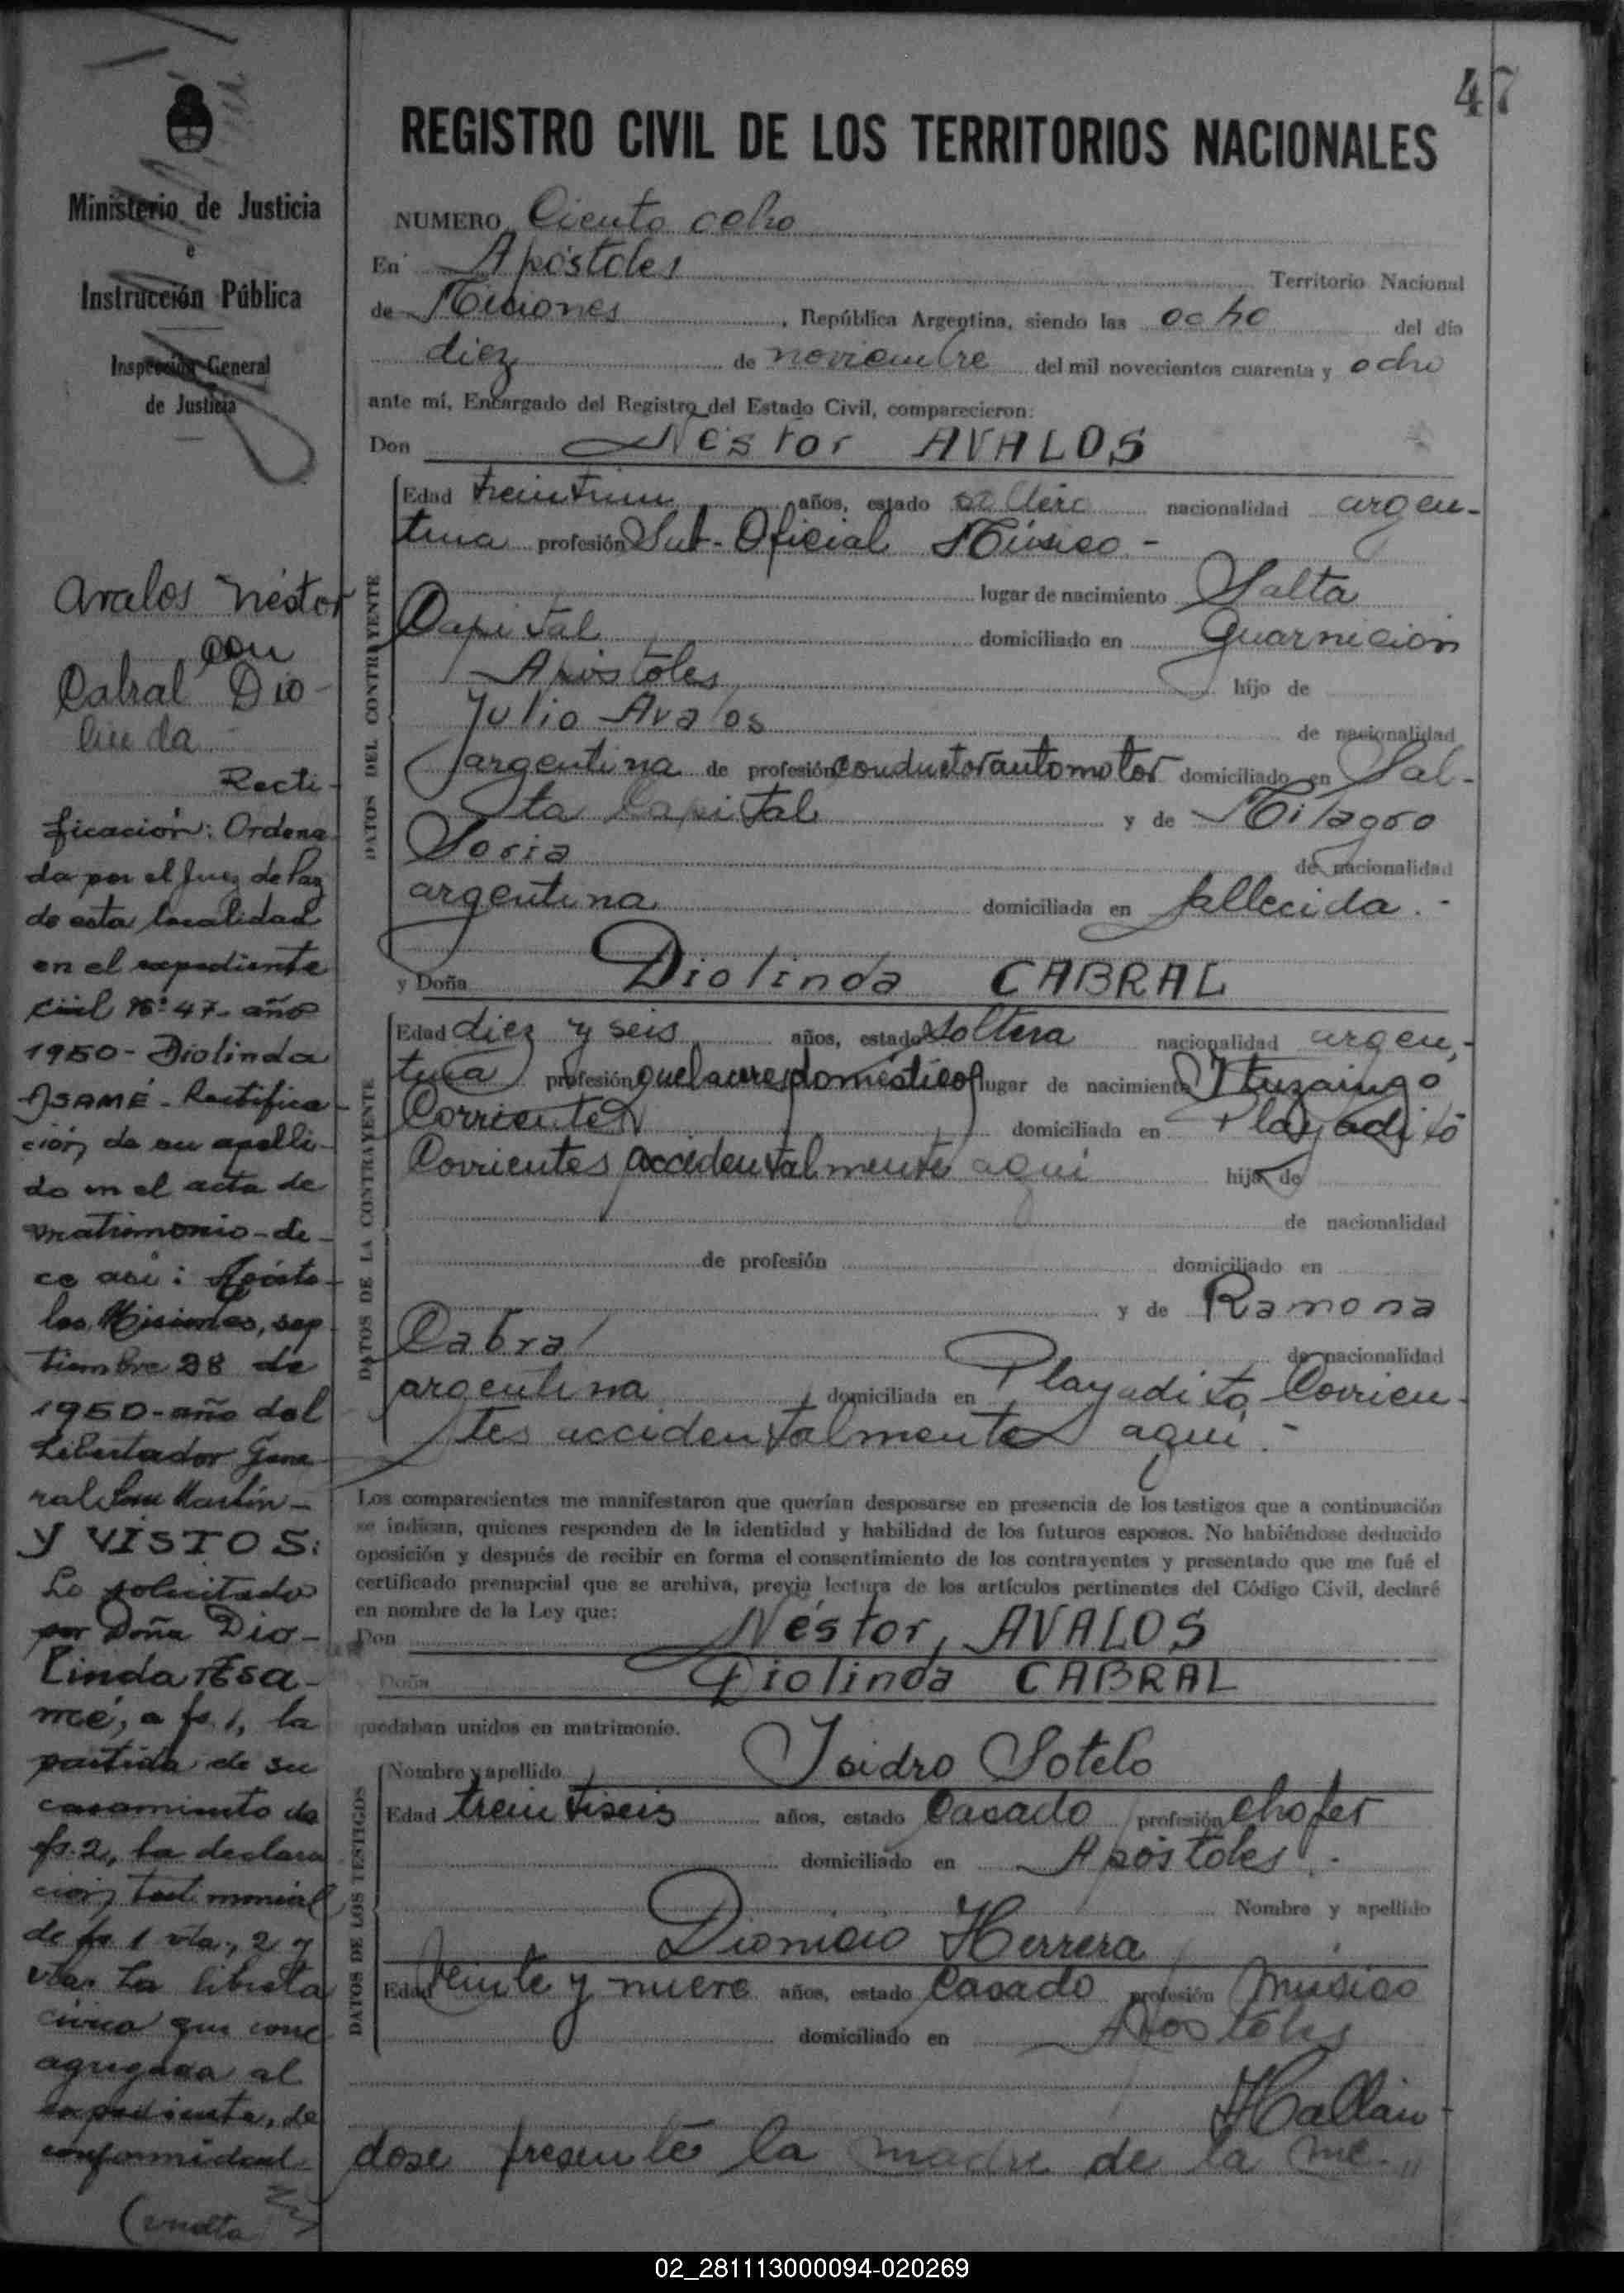 47
Ministerio de Justicia
e
Instrucción Pública
Inspección General
de Justicia
Avalos Néstor
con
Cabral Dio-
linda
Recti-
ficación: Ordena-
da por el Juez de Paz
de esta localidad
en el expediente
civil Nº 47- año
1950- Diolinda
Rectifica-
ción de su apelli-
do en el acta de
matrimonio- di-
ce así: Aposto-
les Misiones, sep-
tiembre 28 de
1950- año del
Libertador Gene-
ral San Martín-
Y VISTOS:
Lo solicitado
por Doña Dio-
linda
a fs. 1, la
partida de su
casamiento de
fs. 2, la declara
ción testimonial
de fs 1 vta., 2 y
vta. La libreta
cívica que corre
agregada al
expediente, de
conformidad
(vuelta
REGISTRO CIVIL DE LOS TERRITORIOS NACIONALES
NUMERO Ciento ocho
En Apóstoles Territorio Nacional
de Misiones, República Argentina, siendo las ocho del día
diez de noviembre del mil novecientos cuarenta y ocho
ante mí, Encargado del Registro del Estado Civil, comparecieron:
Don Néstor AVALOS
DATOS DEL CONTRAYENTE
Edad treintiun años, estado soltero nacionalidad argen-
tina profesión Sub-Oficial Músico -
lugar de nacimiento Salta
Capital domiciliado en Guarnición
Apóstoles hijo de
Julio Avalos de nacionalidad
argentina de profesión conductor automotor domiciliado en Sal-
ta Capital y de Milagro
Soria de nacionalidad
argentina domiciliada en fallecida.-
y Doña Diolinda CABRAL
DATOS DE LA CONTRAYENTE
Edad diez y seis años, estado soltera nacionalidad argen-
tina profesión quehaceres domésticos lugar de nacimiento Ituzaingo
Corrientes domiciliada en Playadito
Corrientes accidentalmente aquí hija de
de nacionalidad
de profesión domiciliado en
y de Ramona
Cabral de nacionalidad
argentina domiciliada en Playadito Corrien-
tes accidentalmente aquí.-
Los comparecientes me manifestaron que querían desposarse en presencia de los testigos que a continuación
se indican, quienes responden de la identidad y habilidad de los futuros esposos. No habiéndose deducido
oposición y después de recibir en forma el consentimiento de los contrayentes y presentado que me fué el
certificado prenupcial que se archiva, previa lectura de los artículos pertinentes del Código Civil, declaré
en nombre de la Ley que:
Don Néstor, AVALOS
Doña Diolinda CABRAL
quedaban unidos en matrimonio.
DATOS DE LOS TESTIGOS
Nombre y apellido Isidro Sotelo
Edad treintiseis años, estado Casado profesión Chofer
domiciliado en Apóstoles.-
Nombre y apellido
Dionicio Herrera
Edad veinte y nueve años, estado Casado profesión Músico
domiciliado en Apóstoles
Hallan-
dose presente la madre de la me-
02_281113000094-020269